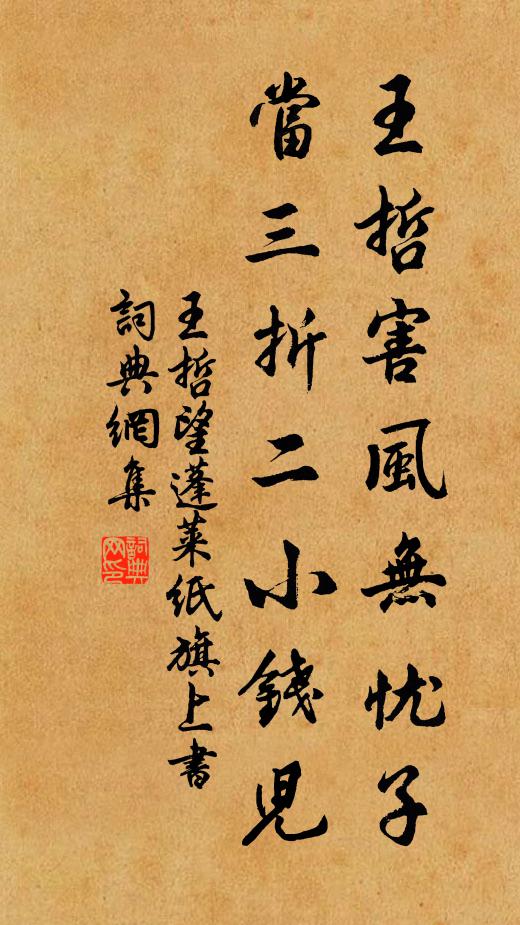 王哲害風無忧子
當三折二小錢児
王哲望蓬莱紙旗上書
詞典網集
詞典网印